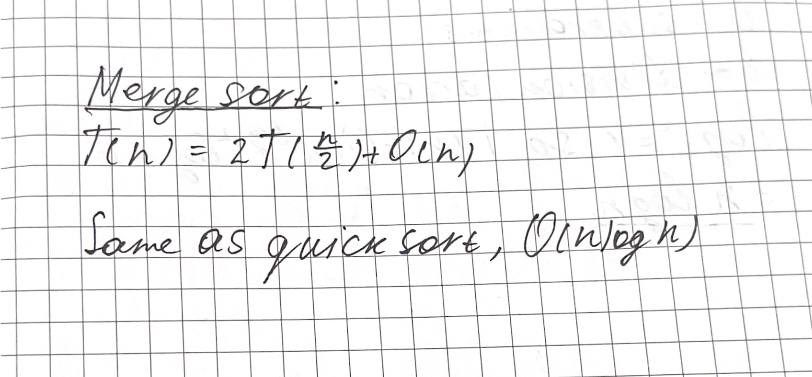 Merge sort:
T(n) = 2T(n/2) + O(n)
Same as quick sort, O(n log n)